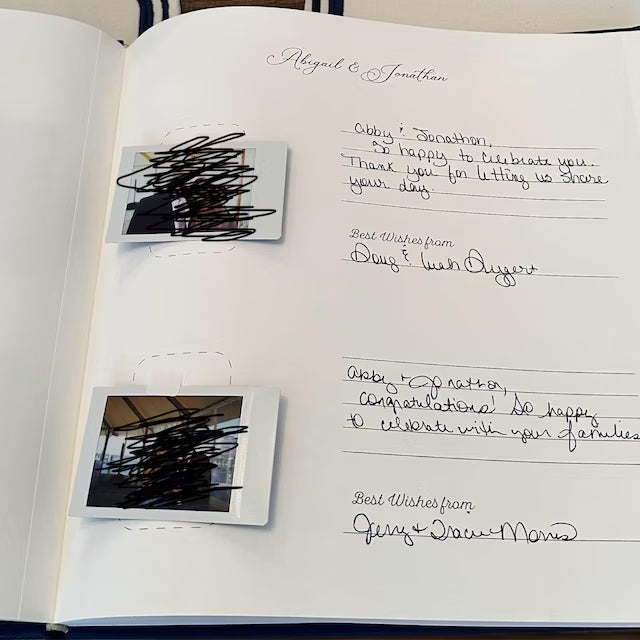 Abigail & Jonathan
Abby & Jonathon,
So happy to celebrate you.
Thank you for letting us share
your day.
Best Wishes from
Doug & Leah Dygert
Abby + Jonathon,
Congratulations! So happy
to celebrate with your families
Best Wishes from
Jerry + Tracie Morris